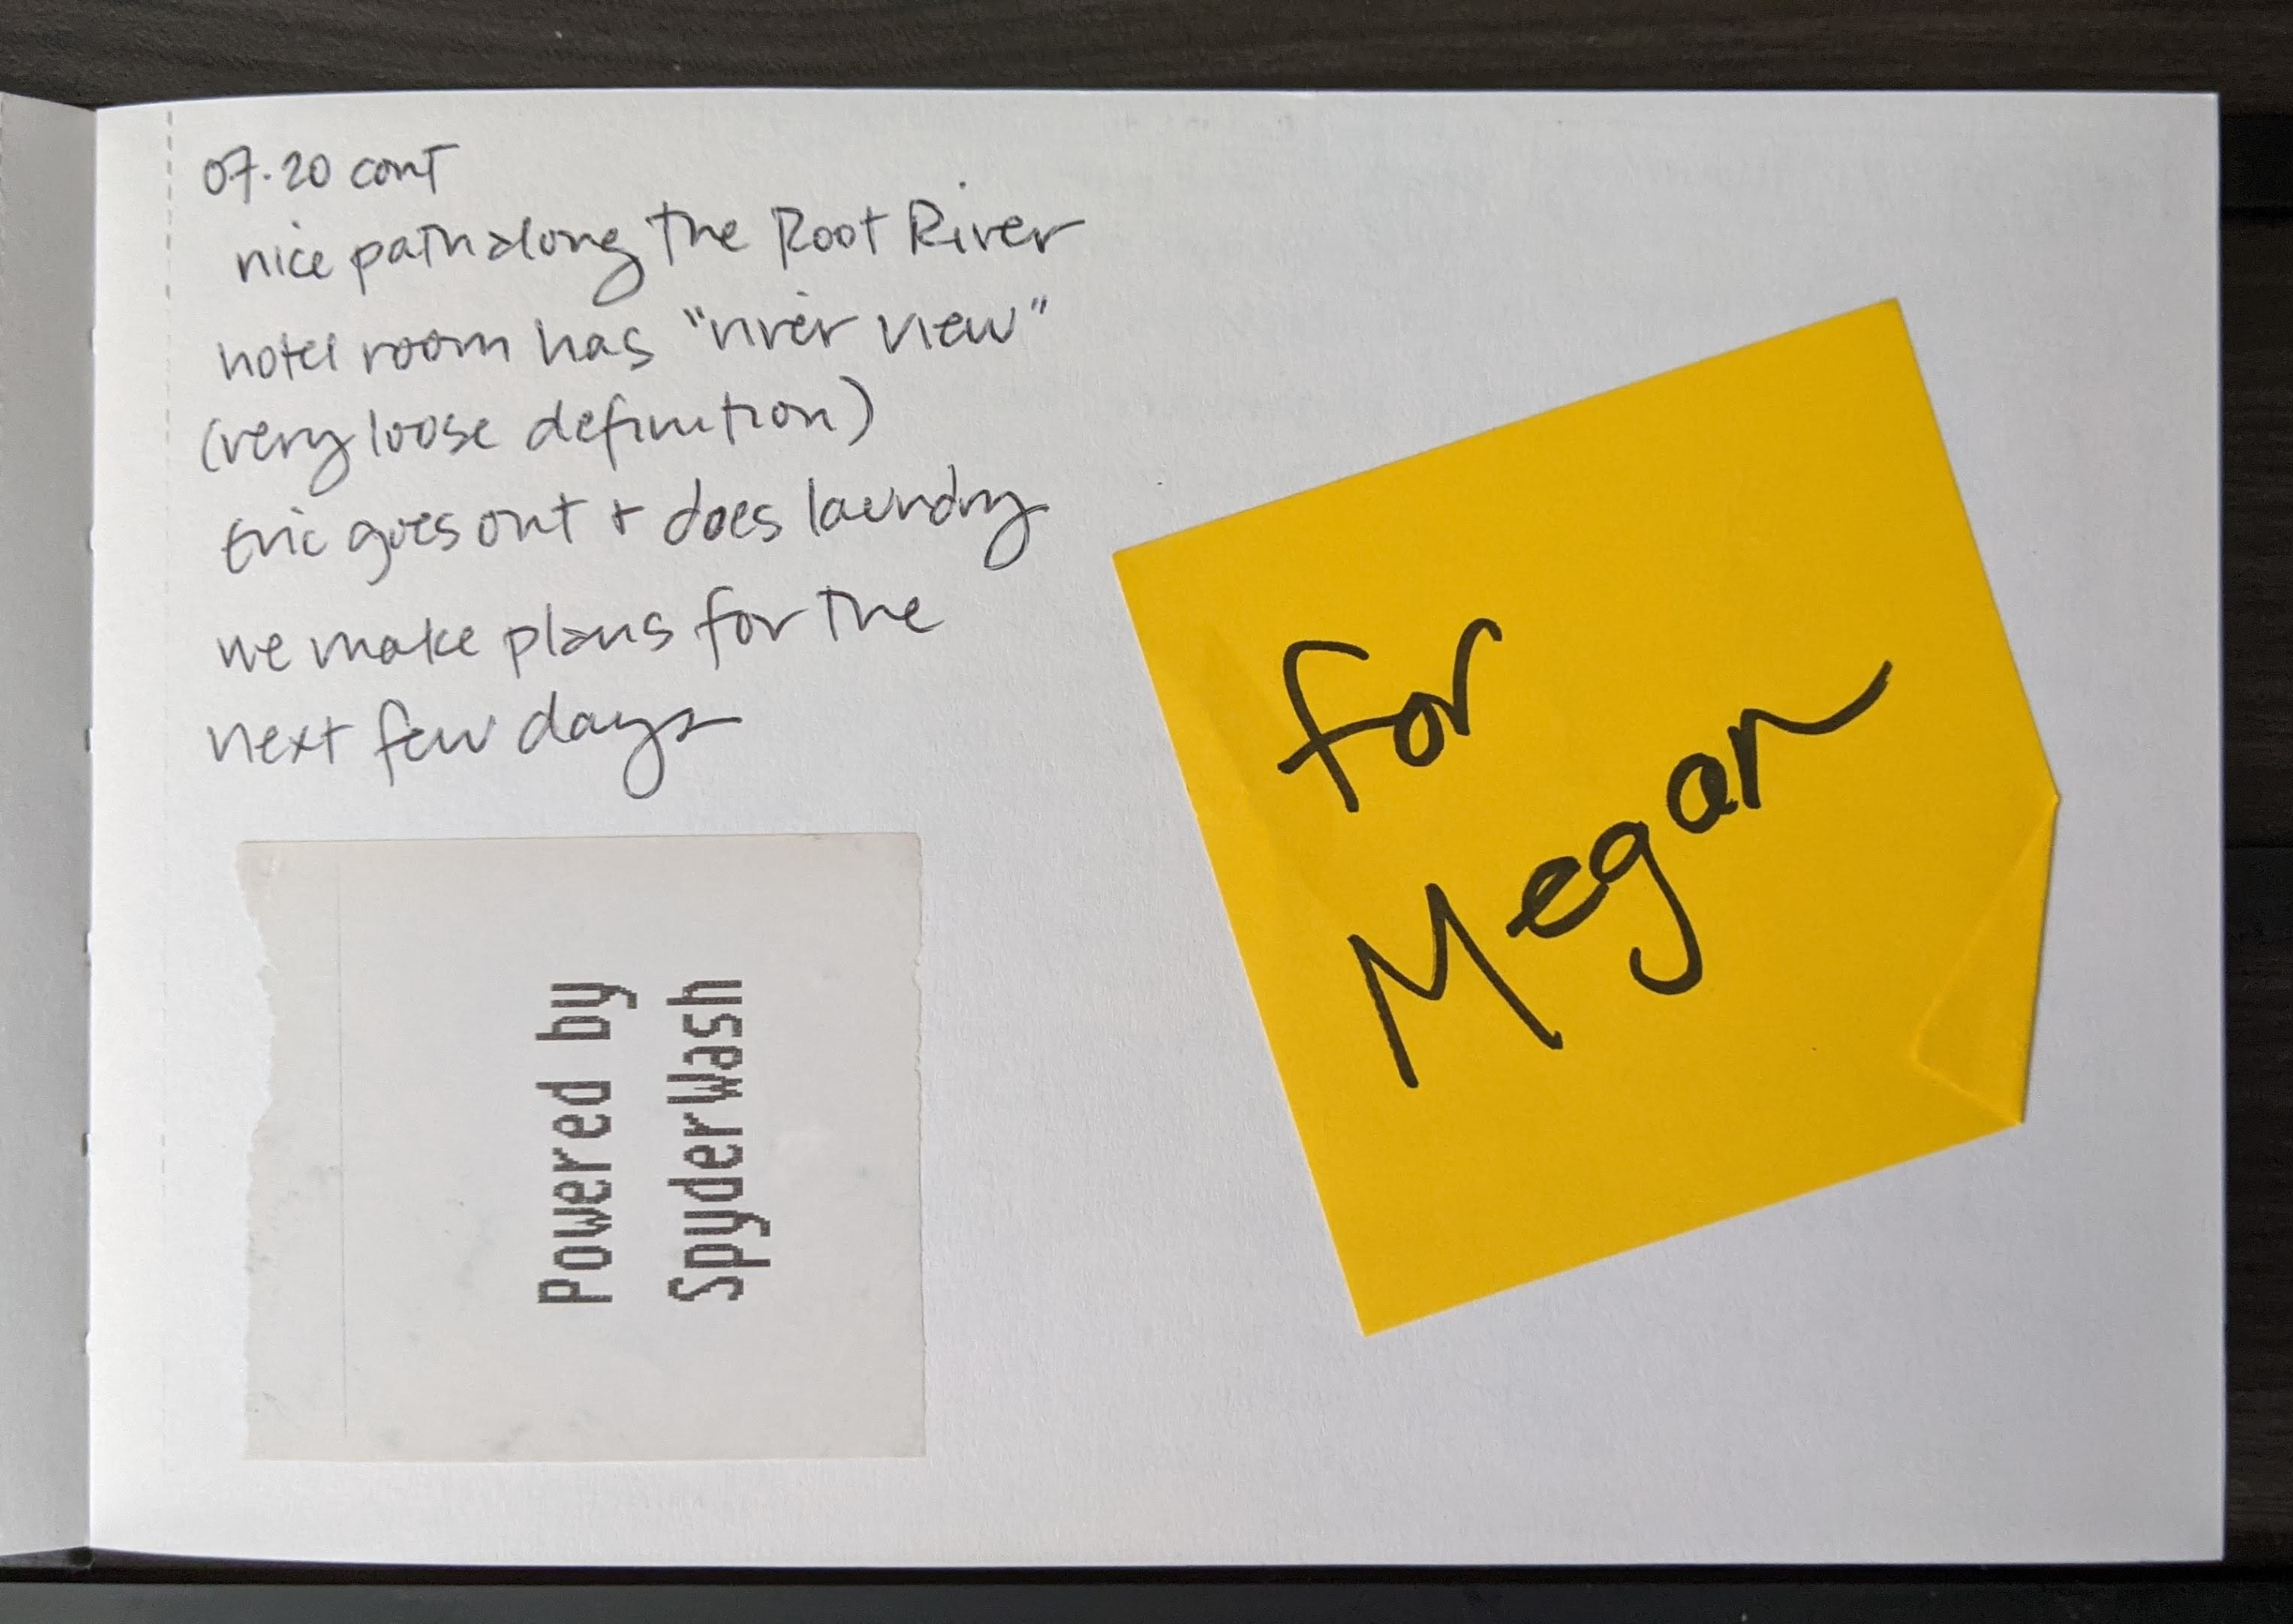 07.20 cont
nice path along the Root River
hotel room has "river view"
(very loose definition)
Eric goes out + does laundry
we make plans for the
next few days
Powered by
SpyderWash
for
Megan